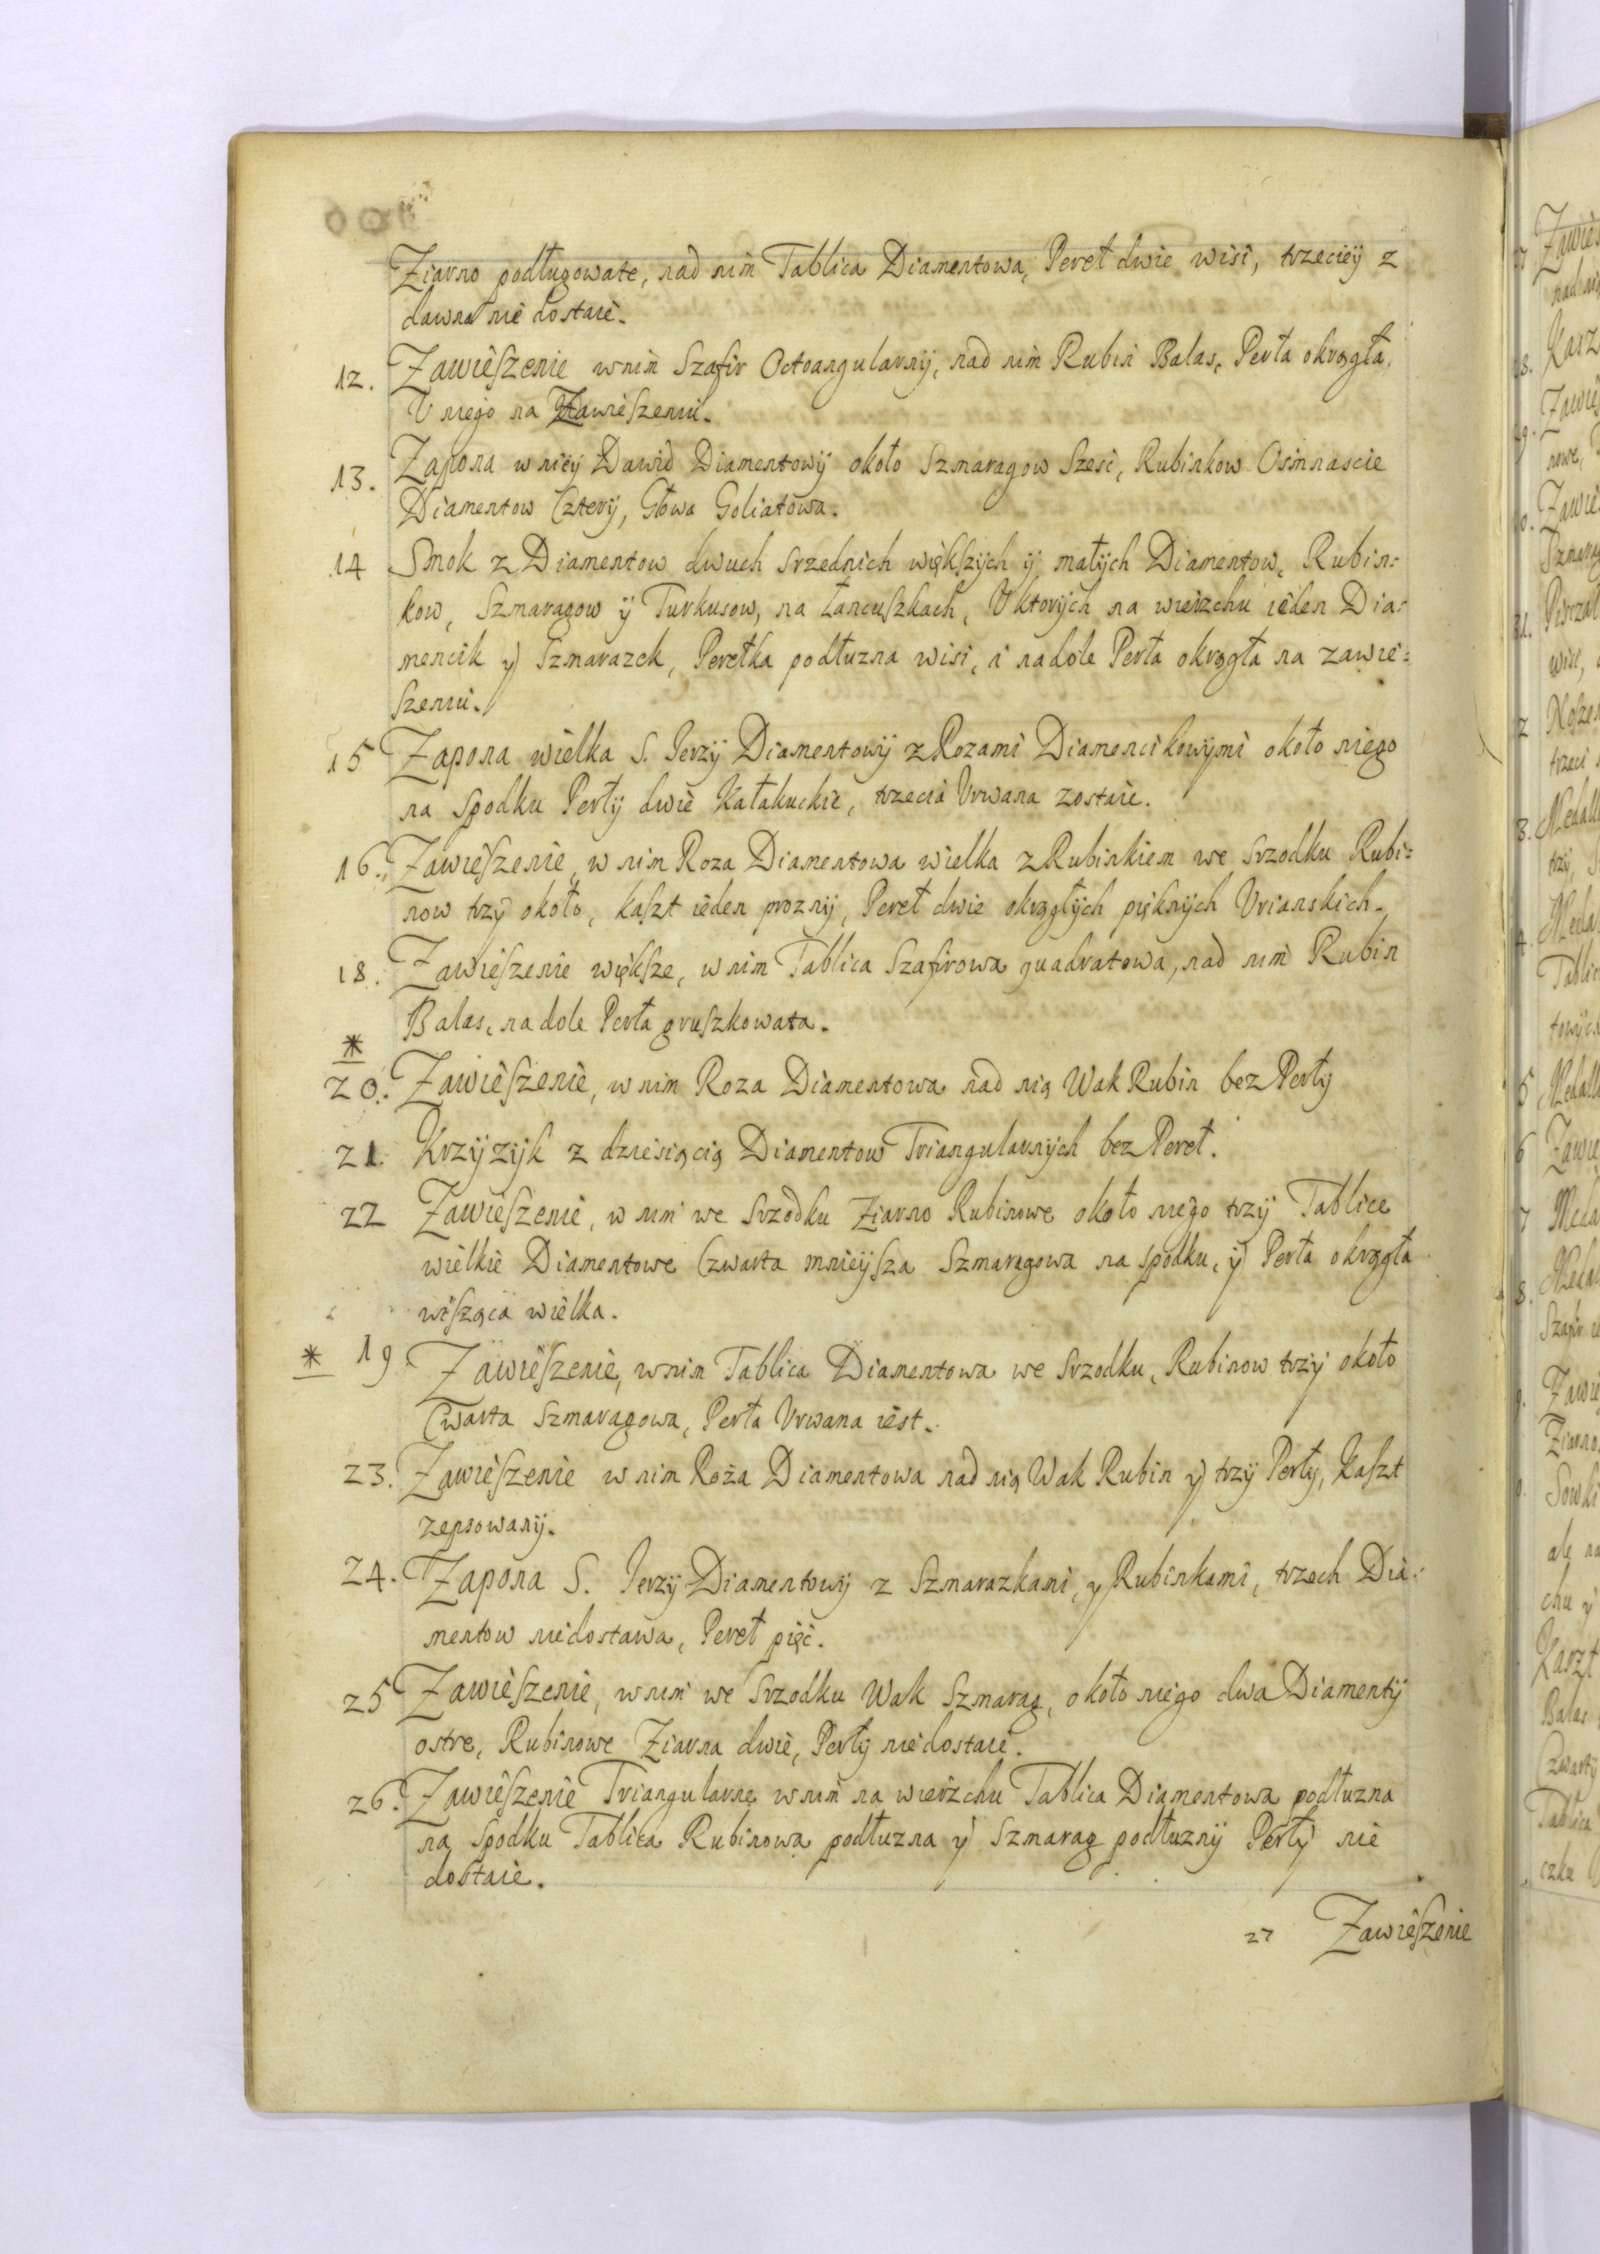 Ziarno podługowate, nad nim Tablica Diamentowa, Pereł dwie wisi, trzeciey z
dawna nie dostaie.
12. Zawieszenie w nim Szafir Octoangularny, nad nim Rubin Balas, Perła okrągła
U niego na Zawieszeniu.
13. Zapona w niey Dawid Diamentowy około Szmaragow Szesc, Rubinkow Osmnascie
Diamentow Cztery, Głowa Goliatowa.
14 Smok z Diamentow dwuch srzednich większych y małych Diamentow, Rubin=
kow, Szmaragow y Turkusow, na Łancuszkach, U ktorych na wierzchu ieden Dia=
mencik y Szmarazek, Perełka podłuzna wisi, a nadole Perła okrągła na zawie=
szeniu.
15 Zapona wielka S. Jerzy Diamentowy z Rozami Diamencikowymi około niego
na spodku Perły dwie Kałakuckie, trzecia Urwana zostaie.
16. Zawieszenie, w nim Roza Diamentowa wielka z Rubinkiem we srzodku Rubi=
now trzy około, kaszt ieden prozny, Pereł dwie okrągłych pięknych Urianskich.
18. Zawieszenie większe, w nim Tablica Szafirowa quadratowa, nad nim Rubin
Balas, na dole Perła gruszkowata.
*
20. Zawieszenie, w nim Roza Diamentowa nad nią Wak Rubin bez Perły
21. Krzyzyk z dziesiącią Diamentow Triangularnych bez Pereł.
22 Zawieszenie, w nim we srzodku Ziarno Rubinowe około niego trzy Tablice
wielkie Diamentowe Czwarta mnieysza Szmaragowa na spodku, y Perła okrągła
wisząca wielka.
* 19 Zawieszenie, w nim Tablica Diamentowa we srzodku, Rubinow trzy około
Cwarta Szmaragowa, Perła Urwana iest.
23. Zawieszenie w nim Roża Diamentowa nad nią Wak Rubin y trzy Perły, Kaszt
zepsowany.
24. Zapona S. Jerzy Diamentowy z Szmarazkami, y Rubinkami, trzech Dia=
mentow niedostawa, Pereł pięć.
25 Zawieszenie, w nim we srzodku Wak Szmarag, około niego dwa Diamenty
ostre, Rubinowe Ziarna dwie, Perły niedostaie.
26. Zawieszenie Triangularne w nim na wierzchu Tablica Diamentowa podłuzna
na spodku Tablica Rubinowa podłuzna y Szmarag podłuzny Perły nie
dostaie.
27 Zawieszenie